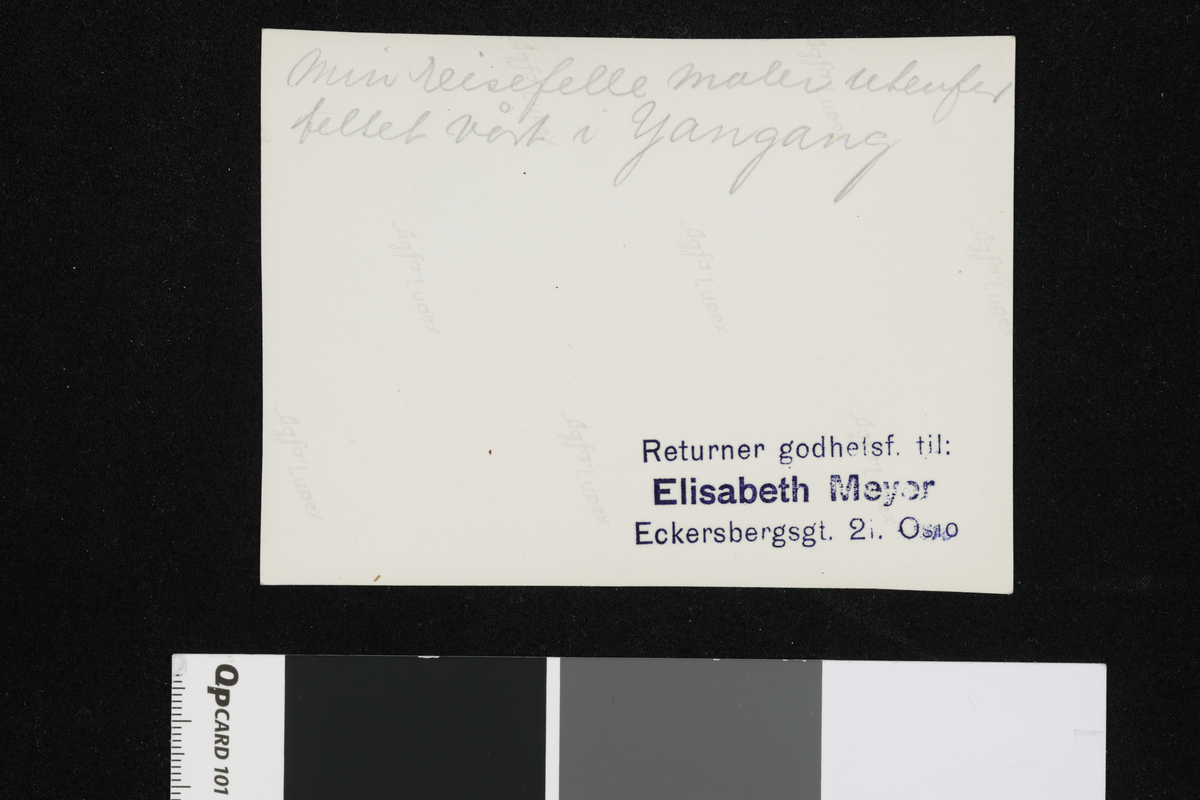 Min reisefelle maler utenfor
teltet vårt i Yangang
Agfa Lupex
Agfa Lupex
Agfa Lupex
Agfa Lupex
Agfa Lupex
Agfa Lupex
Agfa Lupex
Agfa Lupex
Returner godhetsf. til:
Elisabeth Meyer
Eckersbergsgt. 21. Oslo
QPCARD 101